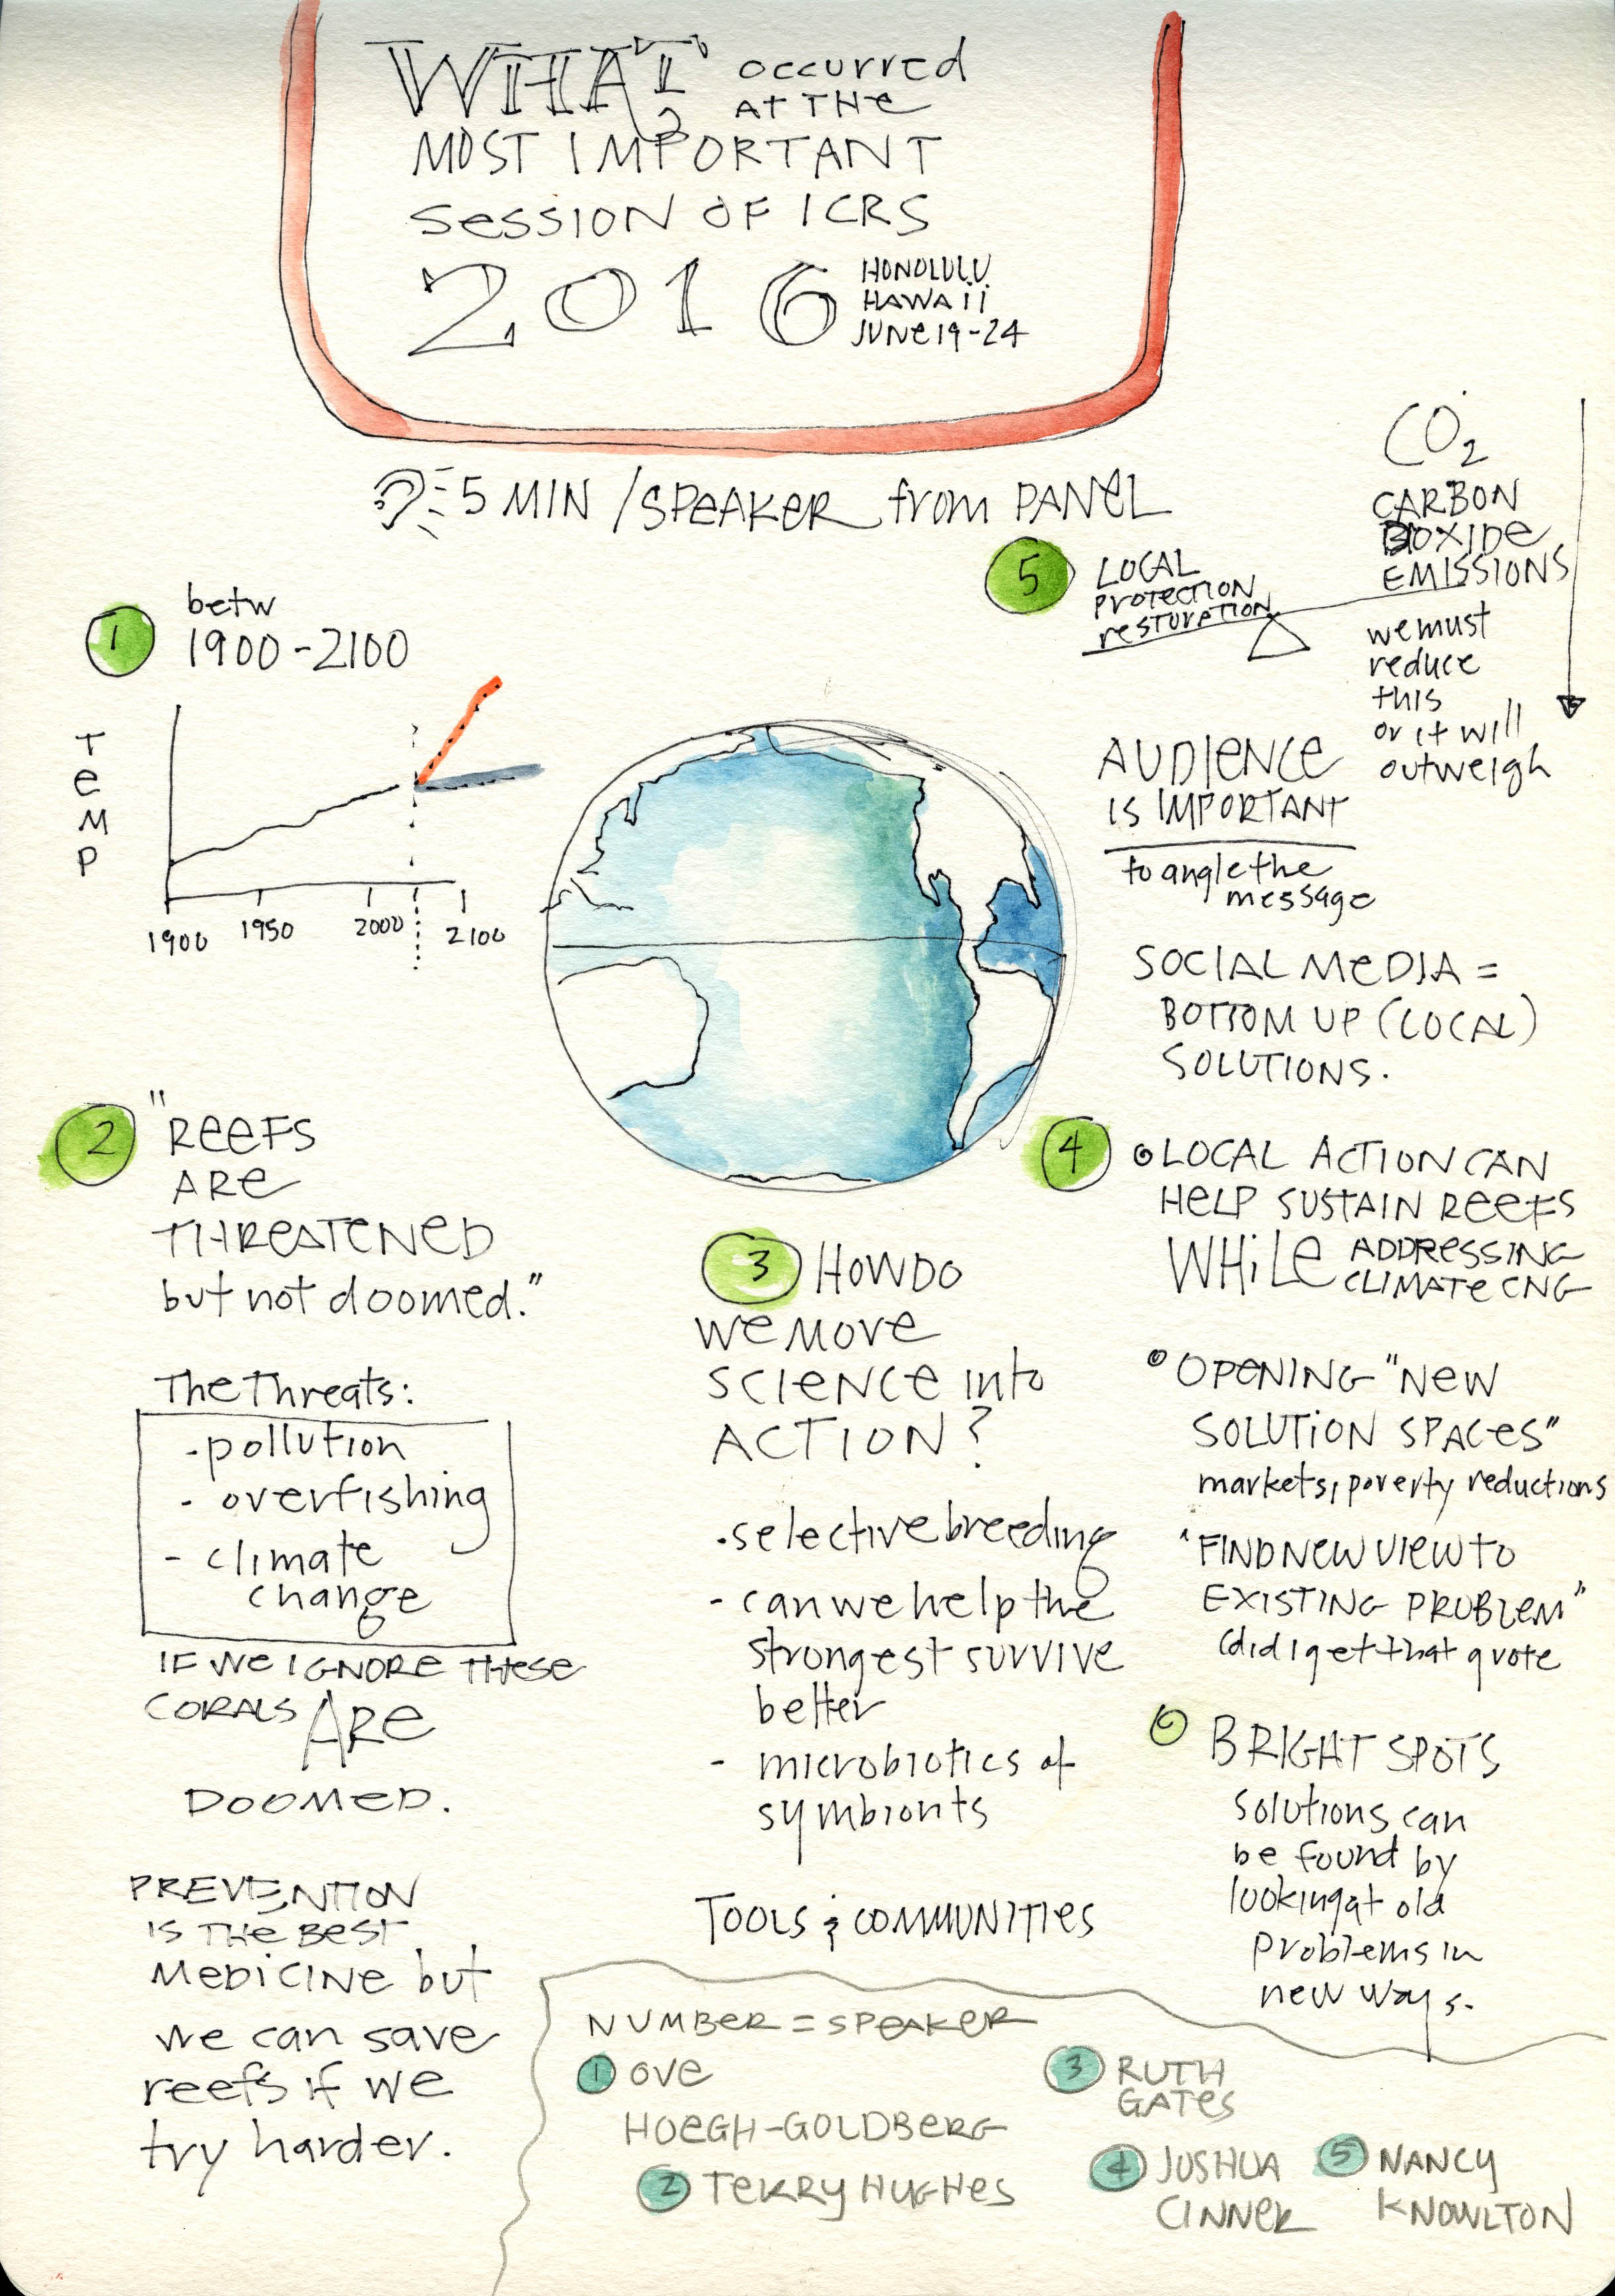 WHAT occurred
AT THE
MOST IMPORTANT
SESSION OF ICRS
2016 HONOLULU
HAWAII
JUNE 19-24
5 MIN / SPEAKER from PANEL
1 betw
1900-2100
TEMP
1900 1950 2000 2100
2 "REEFS
ARE
THREATENED
but not doomed."
The Threats:
- pollution
- overfishing
- climate
change
IF WE IGNORE THESE
CORALS ARE
DOOMED.
PREVENTION
IS THE BEST
MEDICINE but
we can save
reefs if we
try harder.
3 HOW DO
WE MOVE
SCIENCE into
ACTION?
· selective breeding
- can we help the
strongest survive
better
- microbiotics of
symbionts
TOOLS & COMMUNITIES
5 LOCAL
PROTECTION
RESTORATION
CO2
CARBON
DIOXIDE
EMISSIONS
we must
reduce
this
or it will
outweigh
AUDIENCE
IS IMPORTANT
to angle the
message
SOCIAL MEDIA =
BOTTOM UP (LOCAL)
SOLUTIONS.
4 LOCAL ACTION CAN
HELP SUSTAIN REEFS
WHILE ADDRESSING
CLIMATE CNG
OPENING "NEW
SOLUTION SPACES"
markets, poverty reductions
'FIND NEW VIEW TO
EXISTING PROBLEM"
(did I get that quote
BRIGHT SPOTS
solutions can
be found by
looking at old
problems in
new ways.
NUMBER = SPEAKER
1 OVE
HOEGH-GOLDBERG
2 TERRY HUGHES
3 RUTH
GATES
4 JOSHUA
CINNER
5 NANCY
KNOWLTON